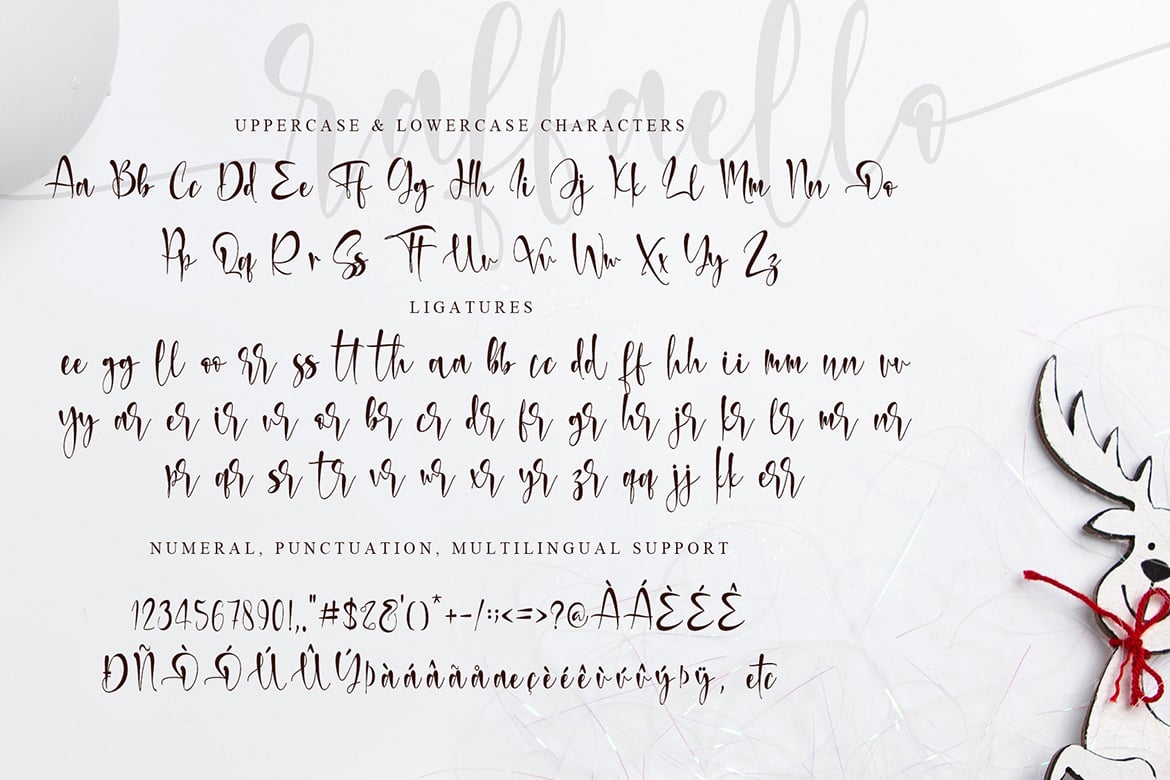 raffaello
UPPERCASE & LOWERCASE CHARACTERS
Aa Bb Cc Dd Ee Ff Gg Hh Ii Jj Kk Ll Mm Nn Oo
Pp Qq Rr Ss Tt Uu Vv Ww Xx Yy Zz
LIGATURES
ee gg ll oo rr ss tt th aa bb cc dd ff hh ii mm nn vv
yy ar er ir ur or br cr dr fr gr hr jr kr lr mr nr
pr qr sr tr vr wr xr yr zr qq jj kk err
NUMERAL, PUNCTUATION, MULTILINGUAL SUPPORT
1234567890!,."#$%&'()*+-/:;<=>?@ÀÁÈÉÊ
ÐÑÒÓÚÛÝþàáâãäåæçèéêùúûýþÿ, etc